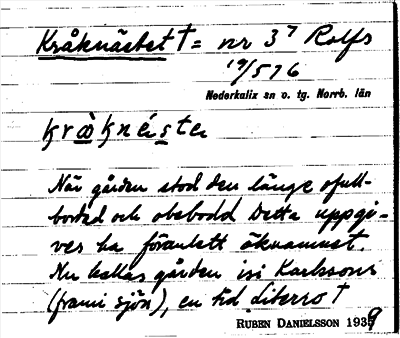 Kråknästet † = nr 3⁷ Rolfs
19/5 76
Nederkalix sn o. tg. Norrb. län
När gården stod den länge ofull-
bordad och obebodd Detta uppgi-
ves ha föranlett öknamnet.
Nu kallas gården isi Karlssons
(frami sjön), en tid Liberro †
RUBEN DANIELSSON 1939